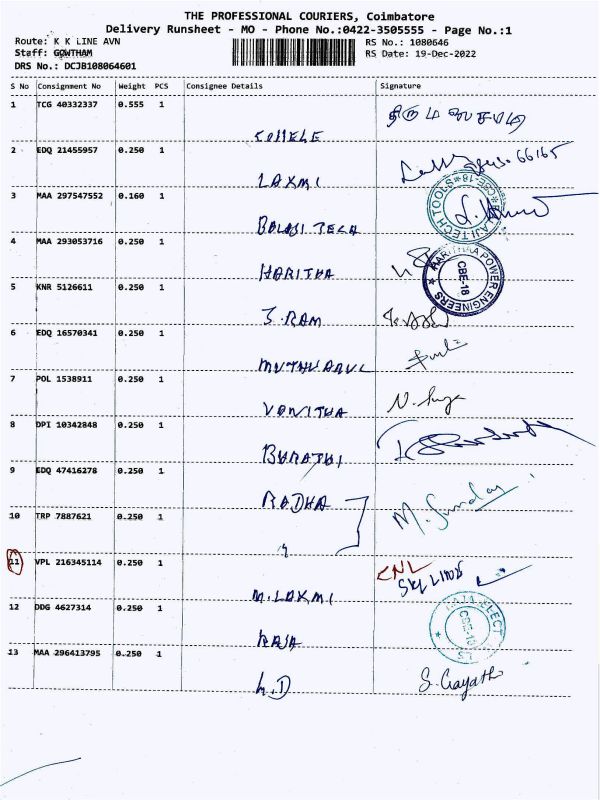 THE PROFESSIONAL COURIERS, Coimbatore
Delivery Runsheet - MO - Phone No.:0422-3505555 - Page No.:1
Route: K K LINE AVN
RS No.: 1080646
Staff: GOWTHAM
RS Date: 19-Dec-2022
DRS No.: DCJB108064601
S No Consignment No Weight PCS Consignee Details Signature
1 TCG 40332337 0.555 1
2 EDQ 21455957 0.250 1
LAXMI 66165
3 MAA 297547552 0.160 1
BALAJI TECH
4 MAA 293053716 0.250 1
HARITHA
HARITHAA POWER ENGINEERS CBE-18
5 KNR 5126611 0.250 1
S.RAM
6 EDQ 16570341 0.250 1
MUTHU ARUL
7 POL 1538911 0.250 1
VANITHA
8 DPI 10342848 0.250 1
BHARATHI
9 EDQ 47416278 0.250 1
RADHA M. Sunday
10 TRP 7887621 0.250 1
11 VPL 216345114 0.250 1
CNL
M. LAXMI
12 DDG 4627314 0.250 1
RAJA
13 MAA 296413795 0.250 1
S. Gayath